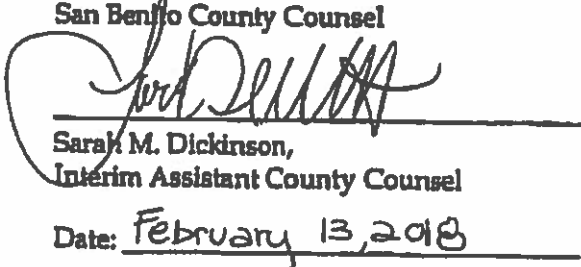 San Benito County Counsel
Sarah M. Dickinson,
Interim Assistant County Counsel
Date: February 13, 2018